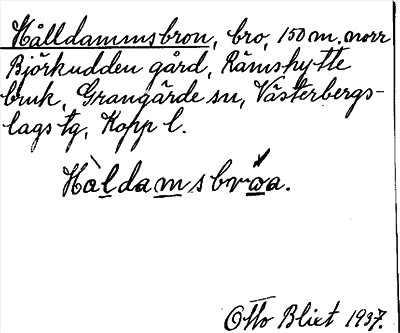 Hålldammsbron, bro, 150 m. norr
Björkudden gård, Rämshytte
bruk, Grangärde sn, Västerbergs-
lags tg, Kopp l.
Hàldamsbrωa.
Otto Blixt 1937.